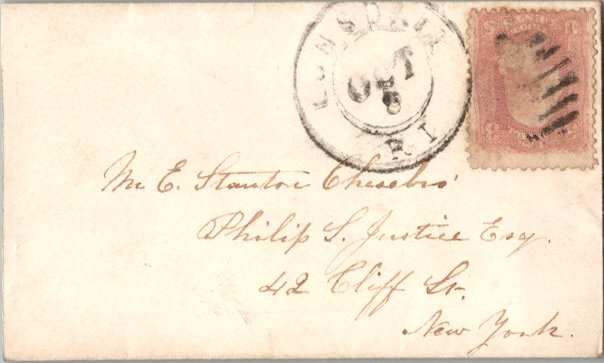 LONSDALE
OCT
8
R I
Mr E. Stanton Chesebro'
Philip S. Justice Esq.
42 Cliff St.
New York.